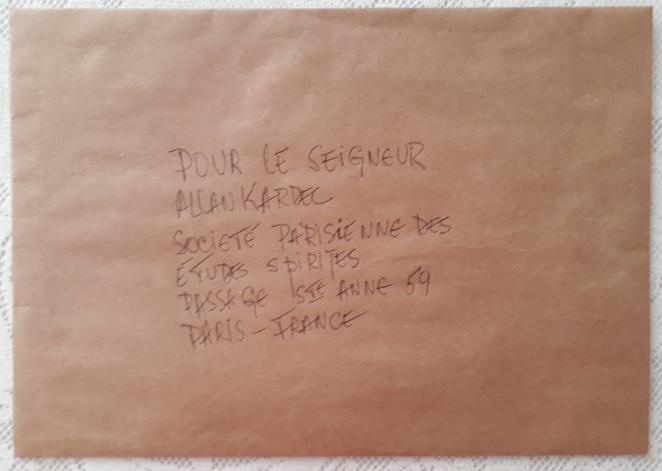 POUR LE SEIGNEUR
ALLAN KARDEC
SOCIETÉ PARISIENNE DES
ÉTUDES SPIRITES
PASSAGE STE ANNE 59
PARIS - FRANCE